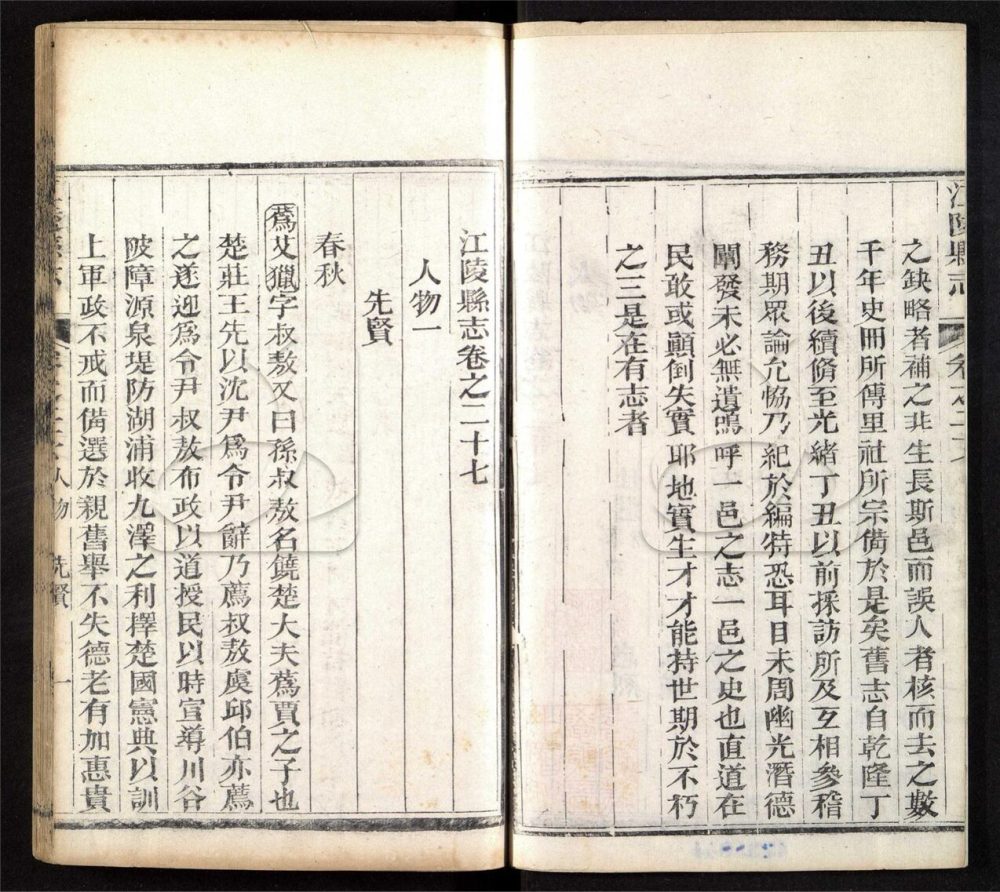 江陵縣志
卷之二十六
之缺略者補之非生長斯邑而誤人者核而去之數
千年史冊所傳里社所宗備於是矣舊志自乾隆丁
丑以後續脩至光緒丁丑以前採訪所及互相參稽
務期眾論允恊乃紀於編特恐耳目未周幽光潛德
闡發未必無遺嗚呼一邑之志一邑之史也直道在
民敢或顚倒失實耶地實生才才能持世期於不朽
之三是在有志者
江陵縣志卷之二十七
人物一
先賢
春秋
蔿艾獵字叔敖又曰孫叔敖名饒楚大夫蔿賈之子也
楚莊王先以沈尹爲令尹辭乃薦叔敖虞邱伯亦薦
之遂迎爲令尹叔敖布政以道授民以時宣導川谷
陂障源泉堤防湖浦收九澤之利擇楚國憲典以訓
上軍政不戒而備選於親舊舉不失德老有加惠貴
人物 先賢 一